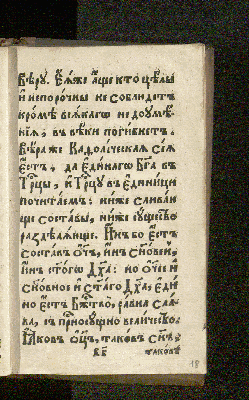 вѣрꙋ. Е҆ѧ́же а҆́ще кто̀ цѣ́лы
и҆ непоро́чны не соблюде́тъ
кромѣ̀ всѧ́кагѡ недоꙋмѣ́
нїѧ, въ вѣ́ки поги́бнетъ.
Вѣ́ра же Каѳолі́ческаѧ сїѧ̀
є҆́сть, да є҆ди́нагѡ Бг҃а въ
Трⷪ҇цы, и҆ Трⷪ҇цꙋ въ є҆ди́ницы
почита́емъ: нижѐ слива́ю
ще соста́вы, нижѐ сꙋщество̀
раздѣлѧ́юще. И҆́нъ бо є҆́сть
соста́въ ѻ҆́ч҃ь, и҆́нъ сн҃о́вень,
и҆́нъ ст҃а́гѡ Дх҃а: но ѻ҆́ч҃ее и҆
сн҃о́вное и҆ ст҃а́гѡ Дх҃а, є҆ди́
но є҆́сть Бж҃ество̀, ра́вна сла́
ва, съприсносꙋ́щно вели́чество.
Ꙗ҆ко́въ ѻ҆ц҃ъ, тако́въ сн҃ъ,
тако́въ
18